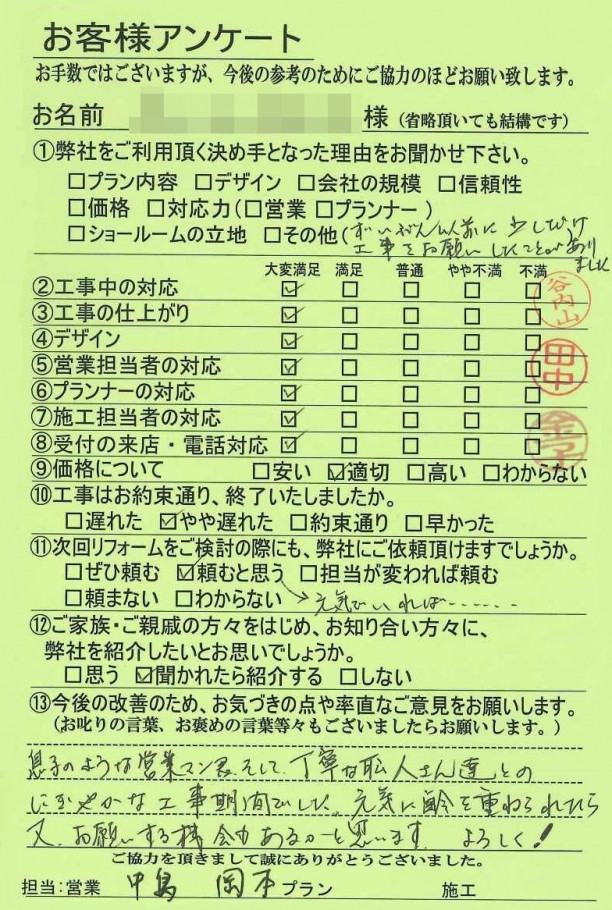 お客様アンケート
お手数ではございますが、今後の参考のためにご協力のほどお願い致します。
お名前 様（省略頂いても結構です）
①弊社をご利用頂く決め手となった理由をお聞かせ下さい。
□プラン内容 □デザイン □会社の規模 □信頼性
□価格 □対応力（□営業 □プランナー）
□ショールームの立地 □その他（ずいぶん以前に少しだけ
工事をお願いしたことがあり
ました
大変満足 満足 普通 やや不満 不満
②工事中の対応 ☑ □ □ □ □
谷内山
③工事の仕上がり ☑ □ □ □ □
④デザイン ☑ □ □ □ □
⑤営業担当者の対応 ☑ □ □ □ □
田中
⑥プランナーの対応 ☑ □ □ □ □
⑦施工担当者の対応 ☑ □ □ □ □
⑧受付の来店・電話対応 ☑ □ □ □ □
金子
⑨価格について □安い ☑適切 □高い □わからない
⑩工事はお約束通り、終了いたしましたか。
□遅れた ☑やや遅れた □約束通り □早かった
⑪次回リフォームをご検討の際にも、弊社にご依頼頂けますでしょうか。
□ぜひ頼む ☑頼むと思う □担当が変われば頼む
□頼まない □わからない →元気でいれば……
⑫ご家族・ご親戚の方々をはじめ、お知り合い方々に、
弊社を紹介したいとお思いでしょうか。
□思う ☑聞かれたら紹介する □しない
⑬今後の改善のため、お気づきの点や率直なご意見をお願いします。
（お叱りの言葉、お褒めの言葉等々もございましたらお願いします。）
息子のような営業マン君、そして、丁寧な職人さん達との
にぎやかな工事期間でした。元気に齢を重ねられたら
又、お願いする機会もあるかーと思います。よろしく！
ご協力を頂きまして誠にありがとうございました。
担当：営業 中島 岡本 プラン 施工